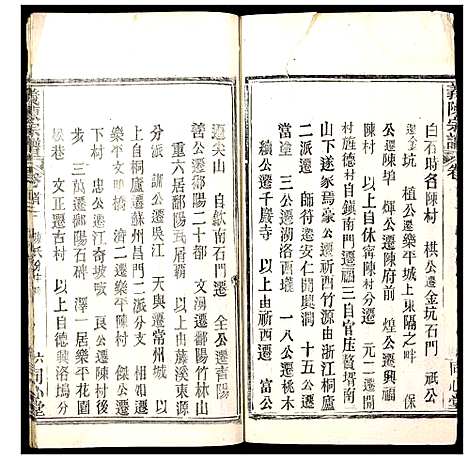 義陳宗譜 卷
白石畈名陳村 棋公遷金坑石門 祇公
遷金坑 植公遷樂平城上東隔之畔 保
公遷陳埠 公遷陳府前 煌公遷興
陳村 以上自休甯陳村分遷 元二遷開
村旌德村自鎮南門遷福 三自官庄贅塔南
山下遂家焉 公遷祈西竹源由浙江桐廬
遷 師待遷安仁開興澗 十五公遷
當塗 三公遷湖洛西壠 一八公遷桃木
續公遷千慶寺 以上由祈西遷 富公
同心堂
遷尖山 自歙南石門遷 全公遷青陽
善公遷鄱陽二十都 文海遷鄱陽竹林山
重六居鄱陽瓦屑霸 以上由藤溪東源
分派 訓公遷吳江 天與遷常州城 以
上自桐廬遷蘇州昌門二派分支 相如遷
樂平文明橋 濟二遷樂平陳村 傑公遷
下村 忠公遷江奇坡 艮公遷棟家
三萬遷鄱陽石碑 澤一居樂平花園
松巷 文正遷古村 以上自德興塢分
義陳宗譜 卷首
六 同心堂